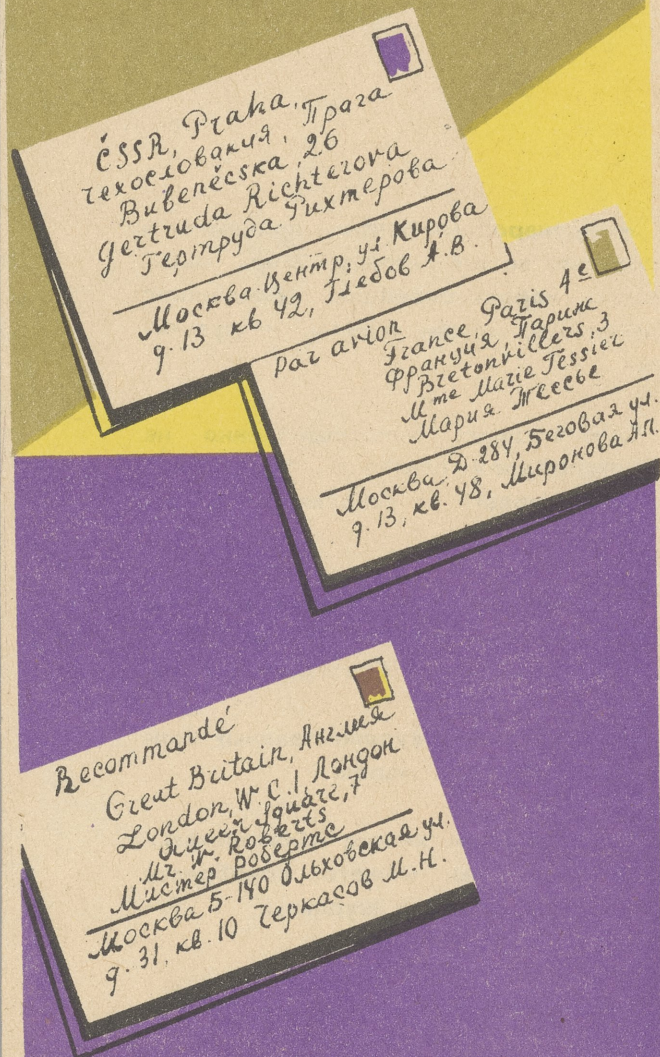 ČSSR, Praha,
чехословакия, Прага
Bubenečska 26
Gertruda Richterova
Гертруда Рихтерова
Москва-Центр, ул. Кирова
д. 13 кв 42, Глебов А.В.
Par avion
France, Paris 4e
Франция, Париж
Bretonvillers, 3
Mme Marie Tessier
Мария Тессье
Москва, Д-284, Беговая ул.
д. 13, кв. 48, Миронова А.П.
Recommandé
Great Britain, Англия
London, W.C.1, Лондон
Queen Square, 7
Mr. W. Roberts
Мистер Робертс
Москва Б-140 Ольховская ул.
д. 31, кв. 10 Черкасов М.Н.